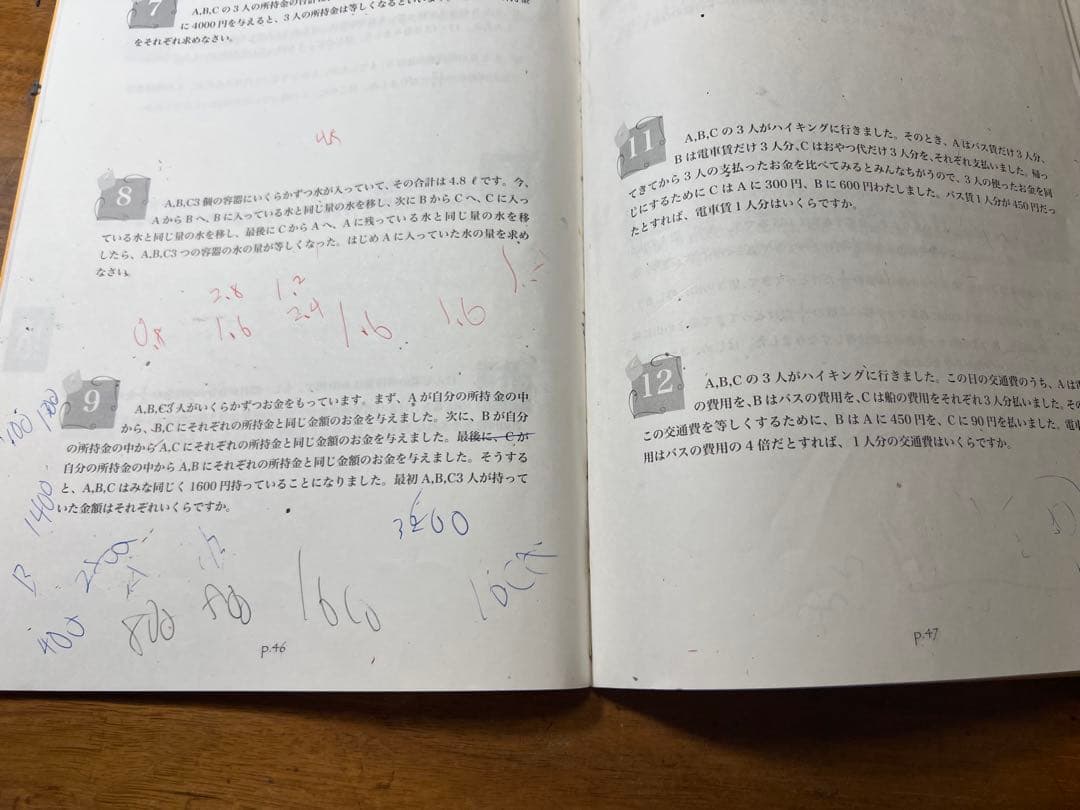 7
A,B,Cの3人の所持金の合計は
に4000円を与えると、3人の所持金は等しくなると
をそれぞれ求めなさい。
8
A,B,C3個の容器にいくらかずつ水が入っていて、その合計は4.8ℓです。今、
AからBへ、Bに入っている水と同じ量の水を移し、次にBからCへ、Cに入っ
ている水と同じ量の水を移し、最後にCからAへ、Aに残っている水と同じ量の水を移
したら、A,B,C3つの容器の水の量が等しくなった。はじめAに入っていた水の量を求め
なさい。
2.8 1.2
0.8 1.6 2.4 1.6 1.6
9
A,B,C3人がいくらかずつお金をもっています。まず、Aが自分の所持金の中
から、B,Cにそれぞれの所持金と同じ金額のお金を与えました。次に、Bが自分
の所持金の中からA,Cにそれぞれの所持金と同じ金額のお金を与えました。最後に、Cが
自分の所持金の中からA,Bにそれぞれの所持金と同じ金額のお金を与えました。そうする
と、A,B,Cはみな同じく1600円持っていることになりました。最初A,B,C3人が持って
いた金額はそれぞれいくらですか。
1400
3200
B
400 800 800 1600
p.46
11
A,B,Cの3人がハイキングに行きました。そのとき、Aはバス賃だけ3人分、
Bは電車賃だけ3人分、Cはおやつ代だけ3人分を、それぞれ支払いました。帰っ
てきてから3人の支払ったお金を比べてみるとみんなちがうので、3人の使ったお金を同
じにするためにCはAに300円、Bに600円わたしました。バス賃1人分が450円だっ
たとすれば、電車賃1人分はいくらですか。
12
A,B,Cの3人がハイキングに行きました。この日の交通費のうち、Aは
の費用を、Bはバスの費用を、Cは船の費用をそれぞれ3人分払いました。その
この交通費を等しくするために、BはAに450円を、Cに90円を払いました。電車
用はバスの費用の4倍だとすれば、1人分の交通費はいくらですか。
p.47